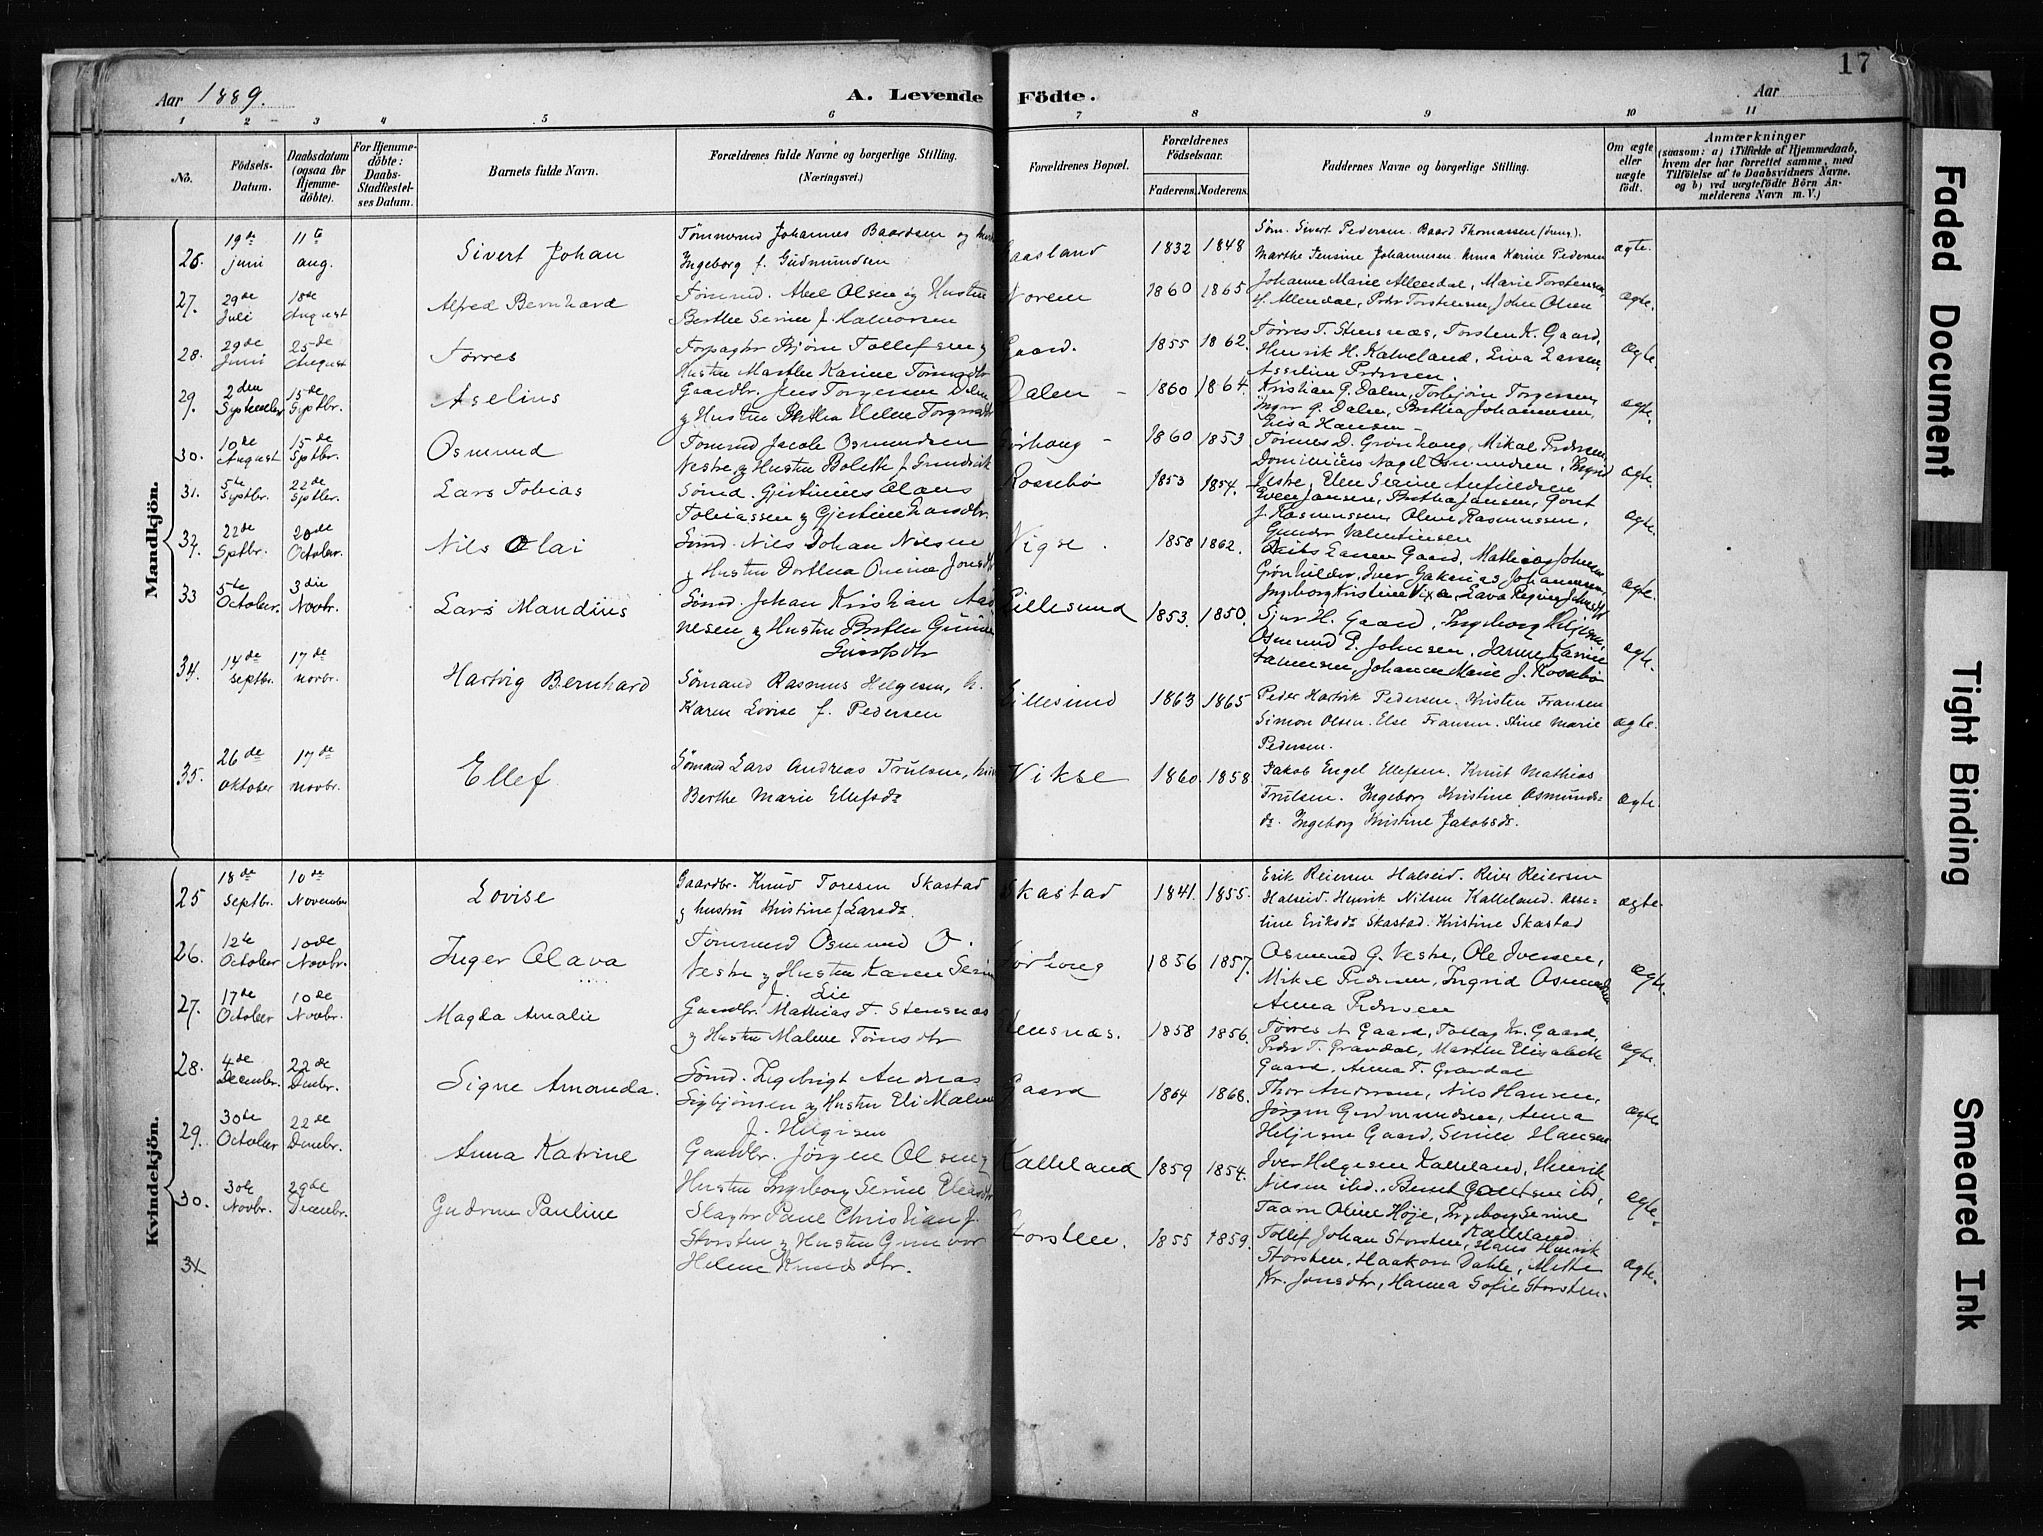 17
Aar 1889.
A. Levende Födte.
Aar
1 2 3 4 5 6 7 8 9 10 11
No.
Födsels-Datum.
Daabsdatum (ogsaa for Hjemme-döbte).
For Hjemme-döbte: Daabs-Stadfæstel-ses Datum.
Barnets fulde Navn.
Forældrenes fulde Navne og borgerlige Stilling.
(Næringsvei.)
Forældrenes Bopæl.
Forældrenes Födselsaar.
Faderens. Moderens.
Faddernes Navne og borgerlige Stilling.
Om ægte eller uægte födt.
Anmærkninger
(saasom: a) i Tilfælde af Hjemmedaab,
hvem der har forrettet samme, med
Tilföielse af to Daabsvidners Navne.
og b) ved uægtefödte Börn An-
melderens Navn m. V.)
Mandkjön.
26. 19de juni 11te aug. Sivert Johan
Johannes Baardsen og
Ingeborg f. Gudmundsen
aasland 1832 1848
Sivert Pedersen. Baard Thomassen
Marthe Jensine Johannesen. Anna Karine Pedersen ægte.
27. 29de Juli 18de August Alfred Bernhard
Tømmd. Abel Olsen og Hustru
Berthe Serine f. Halvorsen
Noren 1860 1865
Johanne Marie Allendal, Marie Torstensen,
H. Allendal, Peder Torstensen, John Olsen ægte.
28. 29de Juni 25de August Tørres
Bjørn Tollefsen og
Hustru Marthe Karine
Gaard. 1855 1862.
Tørres T. Stensnæs, Torsten K. Gaard,
Henrik H. Kalveland, Larsen, ægte.
Asseline Pedersen.
29. 2den September 15de Septbr. Aselius
Gaardbr. Jens Torgersen Dalen
og Hustru Berthe Helene
Dalen - 1860 1864.
Kristian G. Dalen, Torbjørn Torgersen,
G. Dalen, Bertha Johannesen, ægte.
Hansen
30. 10de August 15de Septbr. Osmund
Tømmd Jacob Osmundsen
Veste og Hustru Bolette f.
1860 1853
Tønnes D. Grønhong, Mikal Pedersen,
Nagel Osmundsen, ægte.
31. 5te Septbr. 22de Septbr. Lars Tobias
Sømd. Olaus
Tobiassen og Gjertine
Rossebø 1853 1854.
Veste, Elen Serine
Even Jansen, Bertha Jansen,
J. Rasmussen, Oline Rasmussen, ægte.
Gunder Valentinsen
32. 22de Septbr. 20de October. Nils Olai
Sømd. Nils Johan Nilsen
og Hustru Dorthea
Vigse. 1858 1862.
Larsen Gaard, Mathias Johnsen
Johannesen, ægte.
Ingeborg Kristine Vixe,
33 5te October. 3die Novbr. Lars Mandius
Sømd. Johan Kristian
nesen og Hustru Berthe
Lillesund 1853. 1850.
Sjur H. Gaard, Ingeborg Helgesen,
Osmund E. Johnsen, Janne Karine ægte.
Johanne Marie J. Rossebø
34. 14de septbr. 17de novbr. Hartvig Bernhard
Sømand Rasmus Helgesen, h.
Karen Lovise f. Pedersen
Lillesund 1863 1865
Peder Hartvik Pedersen. Kristen Fransen
Simon Olsen. Else Fransen. Stine Marie ægte.
Pedersen.
35. 26de oktober 17de novbr. Ellef
Sømand Lars Andreas Trulsen,
Berthe Marie Ellefsdr
Vikse 1860. 1858
Jakob Engel Ellefsen. Knut Mathias
Trulsen. Ingeborg Kristine Osmunds- ægte.
dr. Ingeborg Kristine Jakobsdr.
Kvindekjön.
25 18de septbr. 10de November Lovise
Gaardbr. Knud Toresen Skastad
og hustru Kristine f. Larsdr.
Skastad 1841. 1855.
Erik Reiersen Halseid. Reier Reiersen
Halseid. Henrik Nilsen Kalleland. Asse- ægte.
line Eriksdr Skastad. Kristine Skastad
26. 12te October 10de Novbr. Inger Olava
Tømmd Osmund O.
Veste og Hustru Karen Serine
f. Lie
1856 1857.
Osmund G. Veste, Ole Iversen,
Mikal Pedersen, Ingrid ægte.
Anna Pedersen
27. 17de October 10de Novbr. Magda Amalie
Gaardbr. Mathias T. Stensnæs
og Hustru Malene
1858 1856.
Tørres N Gaard, Kr. Gaard,
Peder T. Gravdal, Marthe Elisabeth ægte.
Gaard, Anna T. Gravdal
28. 4de Decembr. 22de Signe Amanda.
Sømd. Ingebrigt Andreas
Sigbjørnsen og Hustru Eli Malene
f. Helgesen
Gaard 1864 1868.
Thor Andersen, Nils Hansen,
Jørgen Gudmundsen, Anna ægte.
Gaard, Serine Hansen
29. 30te October 22de Anna Katrine
Gaardbr. Jørgen Olsen og
Hustru Ingeborg Serine
Kalleland 1859 1854.
Iver Helgesen Kalleland, Henrik
Nilsen ibd., ibd, ægte.
Oline Høje, Ingeborg Serine
Kalleland
30. 30te Novbr. 29de Decembr. Gudrun Pauline
Christian J.
Storsten og Hustru
Helene
Storsten. 1855 1859.
Tollef Johan Storsten, Hans Henrik
Storsten, Haakon Dahle, Mette ægte.
Kr. Jonsdtr, Hanna Sofie Storsten.
31
Faded Document
Tight Binding
Smeared Ink